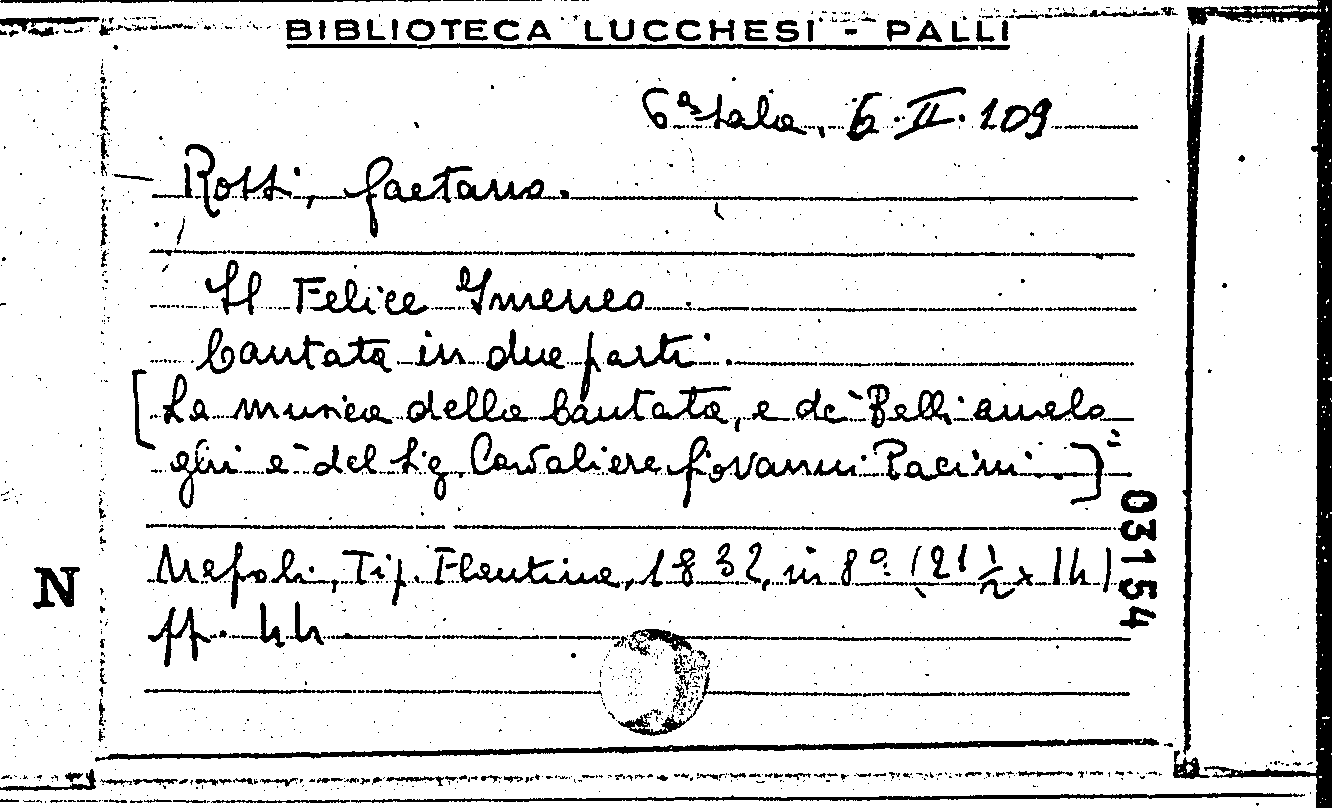 BIBLIOTECA LUCCHESI - PALLI
6ª Sala. 6. II. 109
Rossi, Gaetano.
Il Felice Imeneo
Cantata in due parti.
[La musica della Cantata, e de' Balli analo
ghi è del Sig. Cavaliere Giovanni Pacini.]
Napoli, Tip. Flautina, 1832, in 8º. (21 ½ x 14)
pp. 44.
N
03154